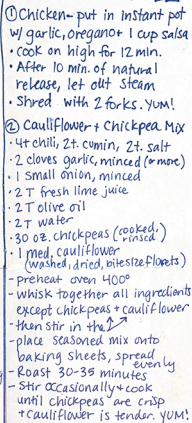 ① Chicken- put in instant pot
w/ garlic, oregano + 1 cup salsa
• Cook on high for 12 min.
• After 10 min. of natural
release, let out steam
• Shred with 2 forks. YUM!
② Cauliflower + Chickpea Mix
• 4t chili, 2t. cumin, 2t. salt
• 2 cloves garlic, minced (or more)
• 1 small onion, minced
• 2 T fresh lime juice
• 2 T olive oil
• 2 T water
• 30 oz. chickpeas (cooked, rinsed)
• 1 med. cauliflower
(washed, dried, bitesize florets)
- preheat oven 400°
- whisk together all ingredients
except chickpeas + cauliflower
- then stir in the
- place seasoned mix onto
baking sheets, spread evenly
- Roast 30-35 minutes
- Stir occasionally + cook
until chickpeas are crisp
+ cauliflower is tender. YUM!